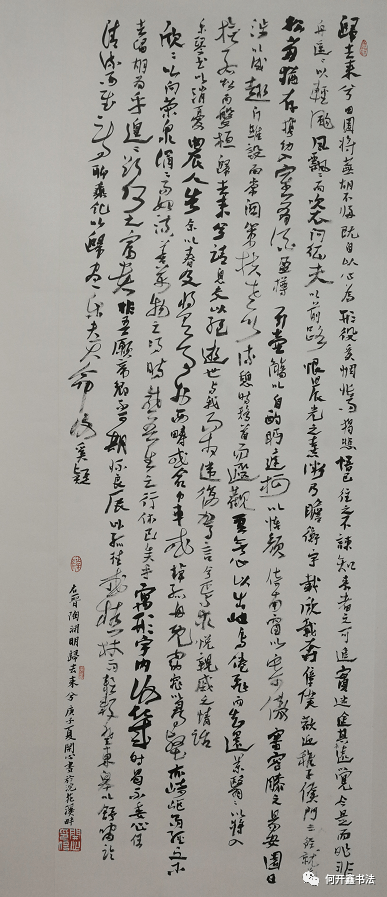 歸去來兮田園將蕪胡不歸既自以心為形役奚惆悵而獨悲悟已往之不諫知來者之可追實迷途其未遠覺今是而昨非
舟遙遙以輕颺風飄飄而吹衣問征夫以前路恨晨光之熹微乃瞻衡宇載欣載奔僮僕歡迎稚子候門三徑就
松菊猶存攜幼入室有酒盈樽引壺觴以自酌眄庭柯以怡顏倚南窗以寄傲審容膝之易安園日
涉以成趣門雖設而常關策扶老以流憩時矯首而遐觀雲無心以出岫鳥倦飛而知還景翳翳以將入
撫孤松而盤桓歸去來兮請息交以絕遊世與我而相違復駕言兮焉求悅親戚之情話
樂琴書以消憂農人告余以春及將有事於西疇或命巾車或棹孤舟既窈窕以尋壑亦崎嶇而經丘木
欣欣以向榮泉涓涓而始流善萬物之得時感吾生之行休已矣乎寓形宇內復幾時曷不委心任
去留胡為乎遑遑欲何之富貴非吾願帝鄉不可期懷良辰以孤往或植杖而耘耔登東皋以舒嘯臨
清流而賦詩聊乘化以歸盡樂夫天命復奚疑
右晉陶淵明歸去來兮庚子夏開心書於浣花溪畔
何开鑫书法